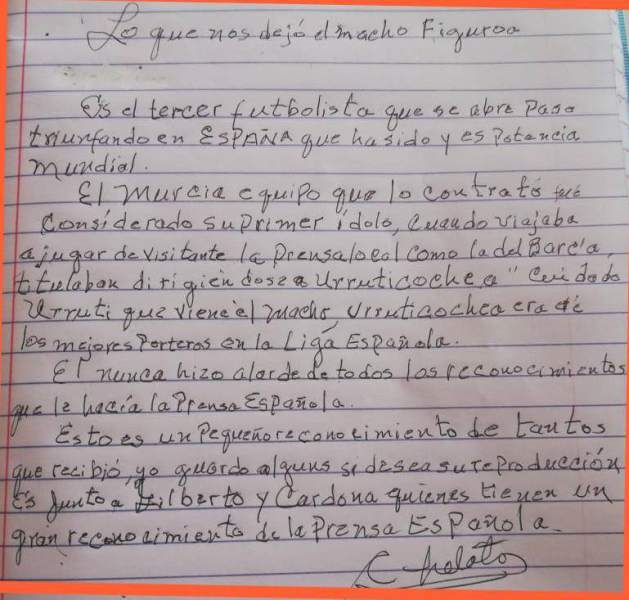 Lo que nos dejó el macho Figuroa
Es el tercer futbolista que se abre Paso
triunfando en ESPAÑA que ha sido y es Potencia
mundial.
El Murcia equipo que lo contrató fué
Considerado su Primer ídolo, Cuando viajaba
a jugar de visitante la Prensa local como la del Barcia,
titulaban dirigien dose a Urruticochea "Cuidado
Urruti que viene el macho, Urruticochea era de
los mejores Porteros en la Liga Española.
El nunca hizo alarde de todos los reconocimientos
que le hacía la Prensa Española.
Esto es un Pequeño reconocimiento de tantos
que recibió, yo guardo alguns si desea su reProducción
Es Junto a Gilberto y Cardona quienes tienen un
gran reconocimiento de la Prensa EsPañola.
Chelato